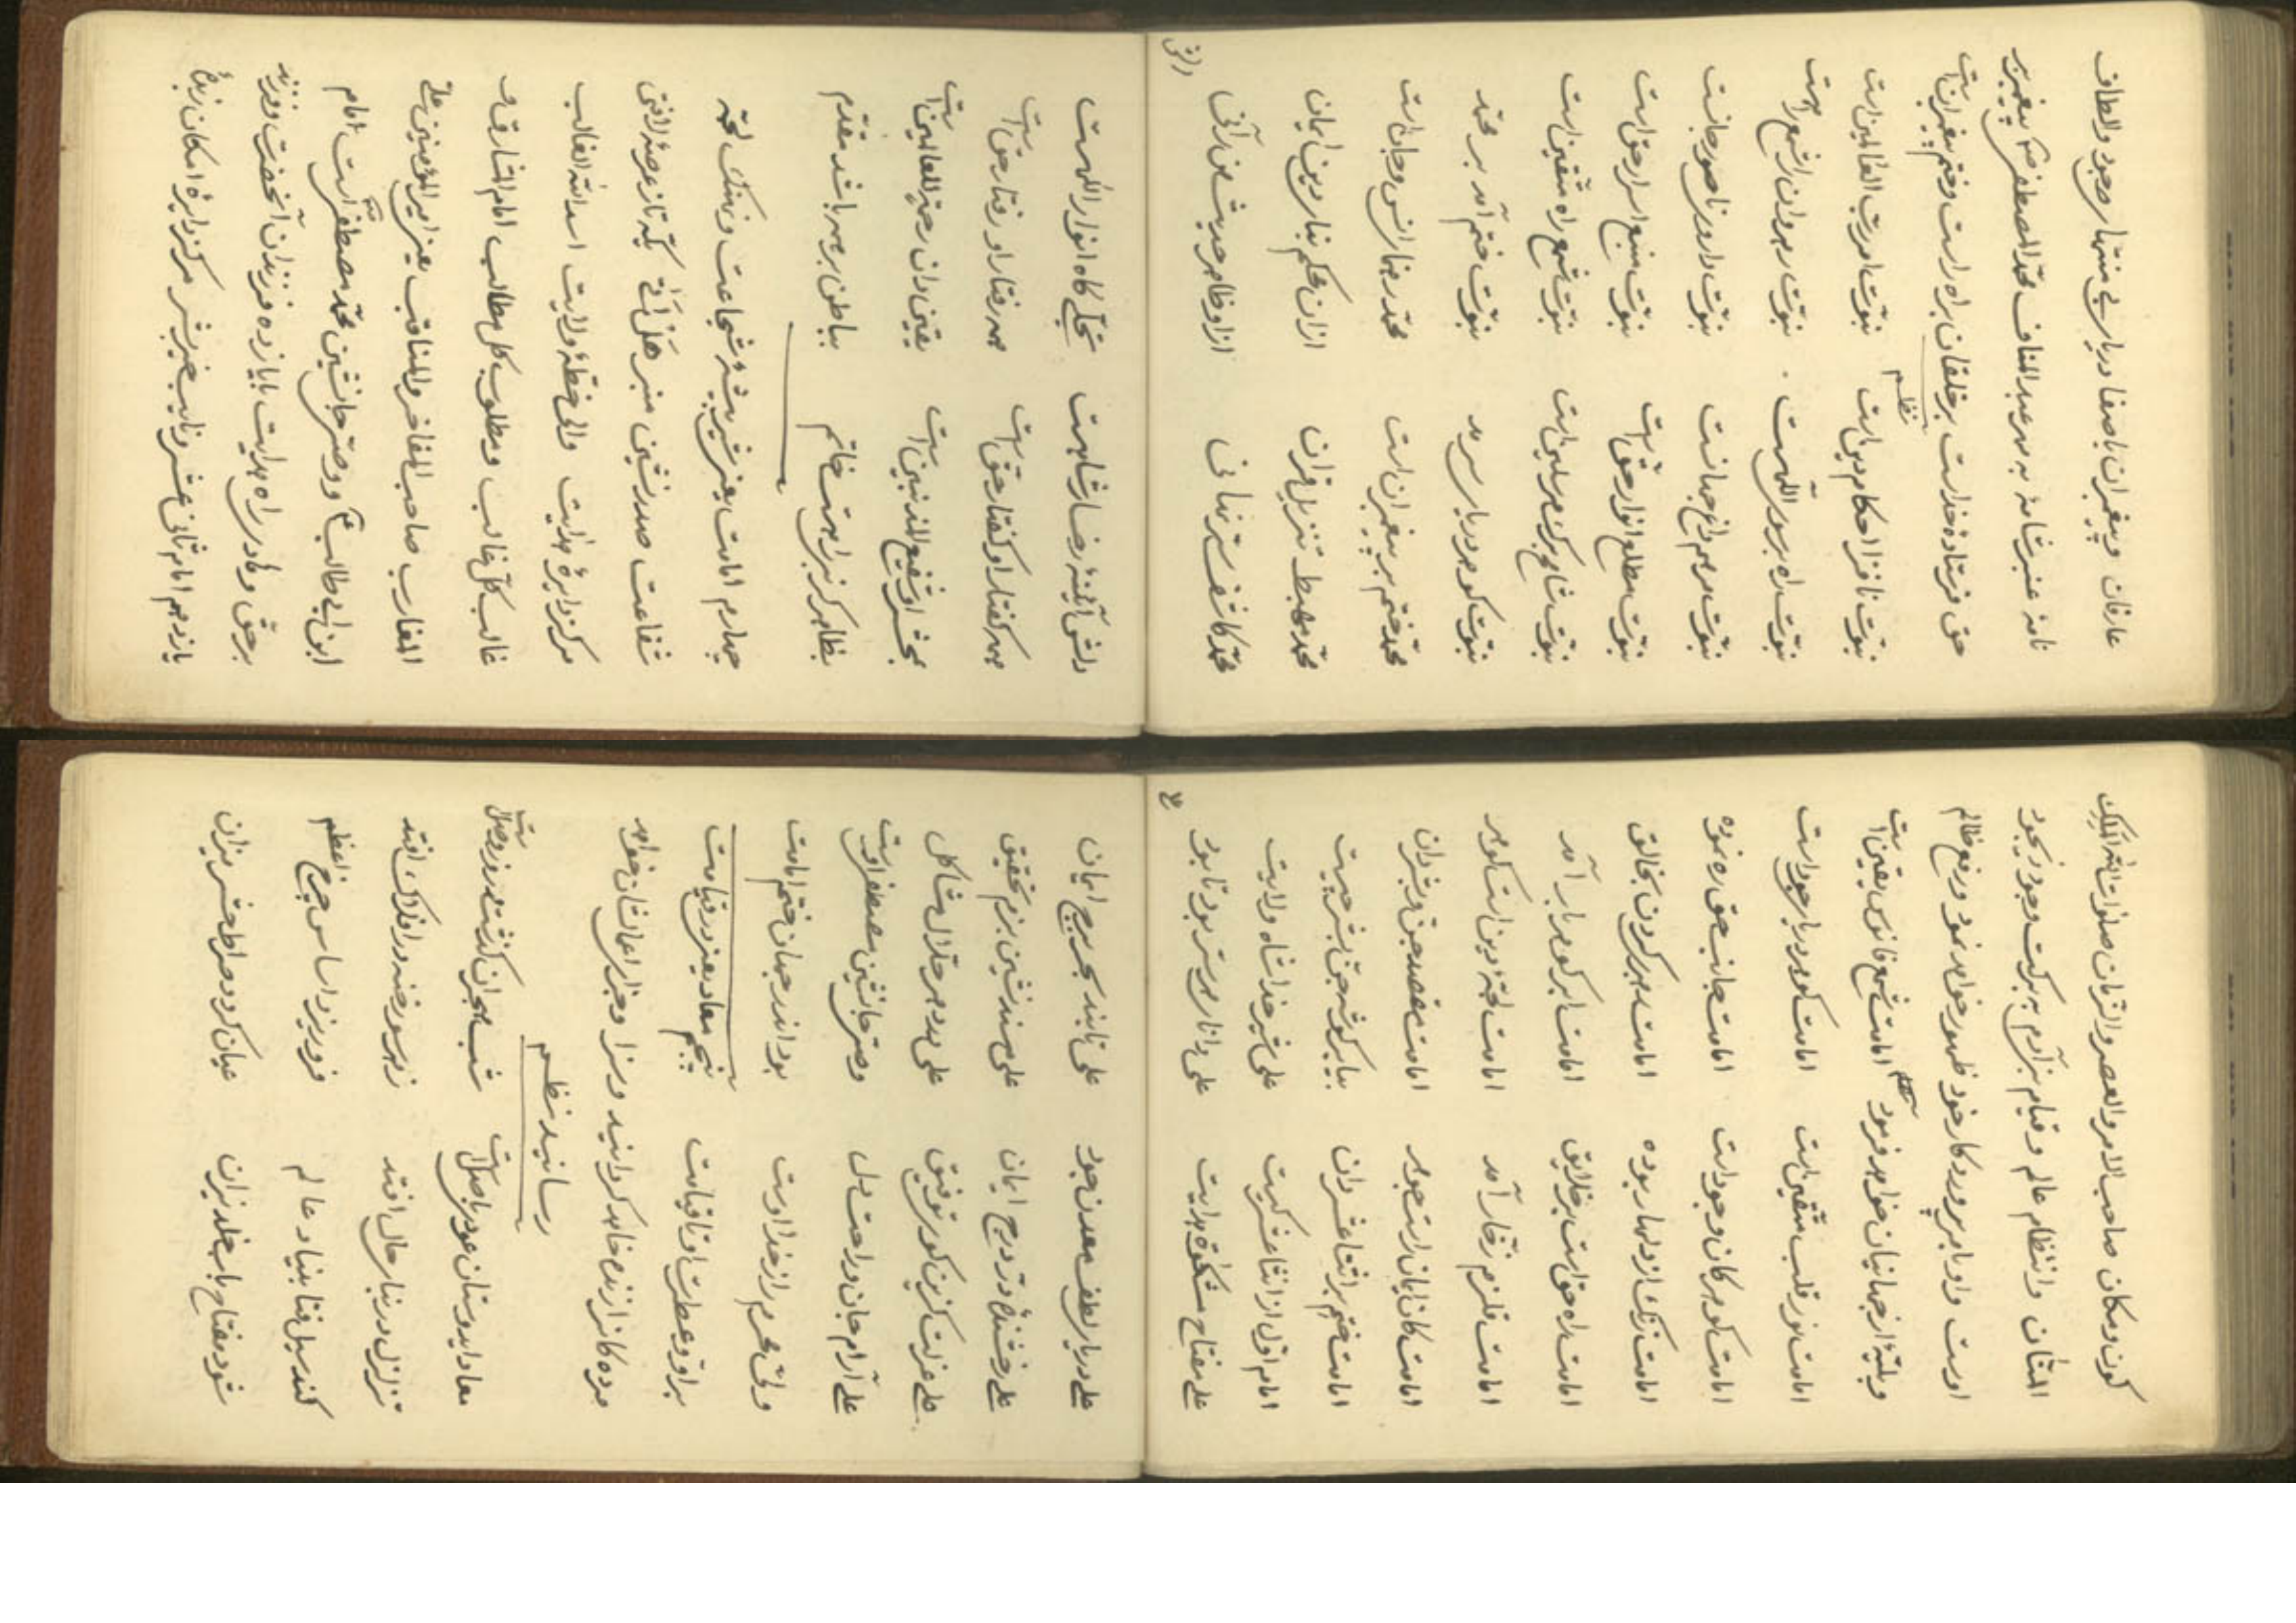 عارفان و پیغمبران باصفا دریای بی منتهای وجود و الطاف
نامهٔ عنبر شمامهٔ به مهر عبدالمناف محمد المصطفی ص پیغمبر بر
حق فرستادهٔ خداست بر خلقان براه راست و ختم پیغمبران است نظم
نبوت نافذ احکام دین است نبوت امر رب العالمین است
نبوت راه بر سوی اللهست نبوت رهروان را شمع راهست
نبوت مرهم داغ جهانست نبوت داروی ناصور جانست
نبوت مطلع انوار حق است نبوت منبع اسرار حق است
نبوت مرسلین است نبوت شمع راه متقین است
نبوت گوهر دریای سرمد نبوت ختم آمد بر محمد
محمد ختم بر پیغمبران است محمد رهنمای انس و جان است
محمد مهبط تنزیل قران ازان محکم بنای دین و ایمان
محمد کاشف ستر نهانی ازو ظاهر حدیث من رآنی
دلش
دلش آئینهٔ رخسار شاهست تجلی گاه انوار اللهست
همه گفتار او گفتار حق است همه رفتار او رفتار حق است
بمحشر او شفیع المذنبین است یقین دان رحمة للعالمین است
بظاهر گر نبی را هست خاتم بباطن بر همه باشد مقدم
چهارم امامت یعنی شیر بیشهٔ شجاعت و نهنک لجه
شفاعت صدرنشین منبر هل اتی یکه تاز عرصهٔ لافتی
مرکز دایرهٔ هدایت والی خطهٔ ولایت اسدالله الغالب
غالب کل غالب و مطلوب کل طالب امام المشارق و
المغارب صاحب المفاخر والمناقب یعنی امیرالمؤمنین علی
ابن ابی طالب ع وصی جانشین محمد مصطفی است امام
برحق و هادی راه هدایت با یازده فرزندان آنحضرت و فرزند
یازدهم امام ثانی عشر و نایب خیرالبشر مرکز دایرهٔ امکان زبدهٔ
کون و مکان صاحب الامر والعصر والزمان صلوات الله الملک
المنان و انتظام عالم و قیام بنی آدم به برکت وجود ذیجود
اوست و او بامر پروردکار خود ظهور خواهد نمود و رفع ظالم
از جهانیان خواهد فرمود نظم امامت شمع فانوس یقین است
امامت نور قلب متقین است امامت گوهر دریای جود است
امامت گوهر کان وجود است امامت جانب حق ره نموده
امامت زنگ از دلها ربوده امامت رهبر کردن بخالق
امامت راه حق است بر خلایق امامت ابر گوهر بار آمد
امامت قلزم زخار آمد امامت لجهٔ دین است گوهر
امامت کان ایمان است جوهر امامت مقصد جن و بشر دان
امامت ختم بر اثنا عشر دان بیا بر گو که حق بشر چیست
امام اول از اثنا عشر کیست علی شیر خدا شاه ولایت
علی مفتاح مشکوة هدایت علی دانای هر ستر بود نابود
علی دریای لطف معدن جود علی تابنده بحر برج ایمان
علی رخشنده در درج ایمان علی مسندنشین بزم تحقیق
علی عزلت گزین کوی توفیق علی بد در همه حلال مشاکل
علی آرام جان و راحت دل وصی جانشین مصطفی اوست
ولی محرم راز خدا اوست بود اندر جهان ختم امامت
بر او و عطرت او تا قیامت پنجم معاد یعنی روز قیامت
مرده کانرا زنده خواهد کردانید و سزا و جزای اعمالشان خواهد
رسانید نظم
معاد ای دوستان عود باصل است شب هجران گذشته روز وصل است
تزلزل در بنای جبال افتد ز هر سو رخنه در افلاک افتد
کند سیل فنا بنیاد عالم فرو ریزد اساس چرخ اعظم
شود مفتاح باب خلد نیران عیان گردد صراط حشر میزان